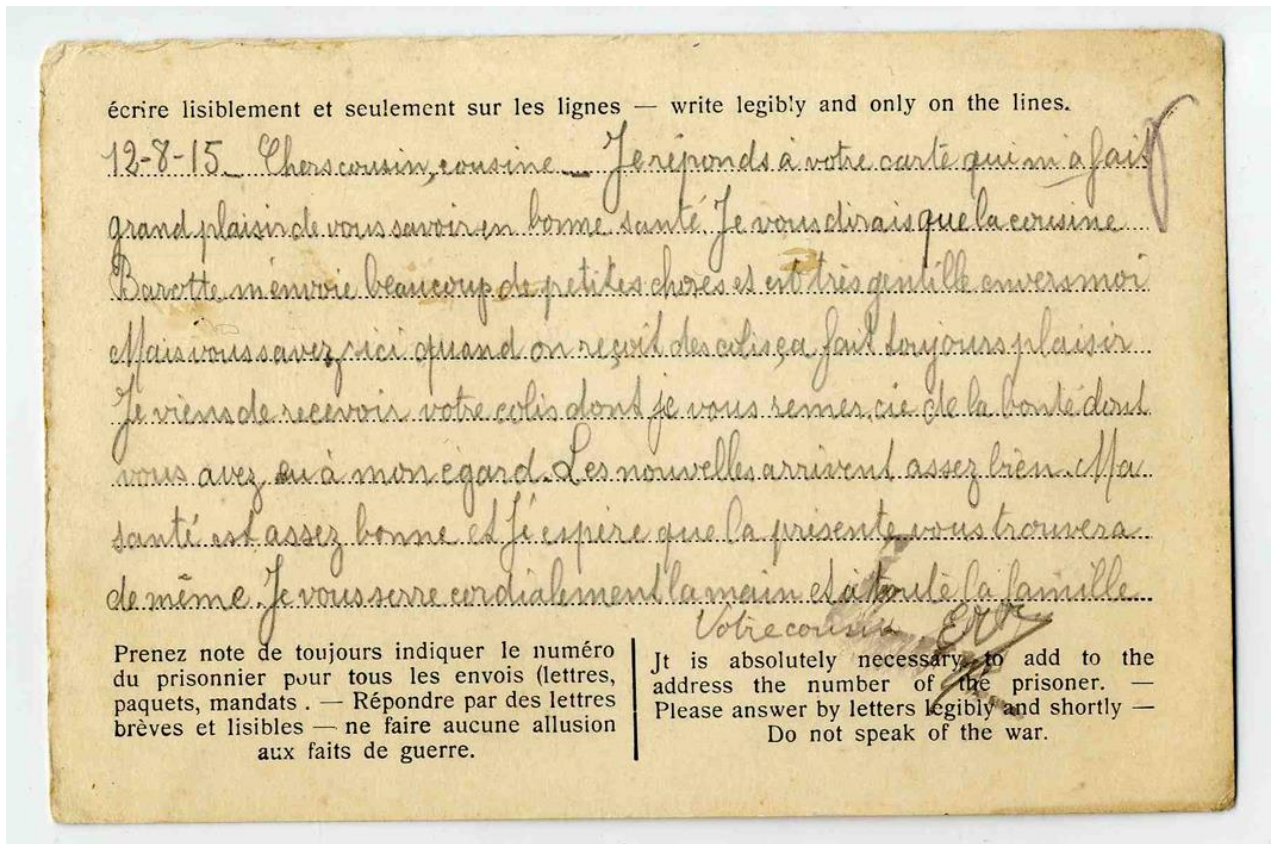 écrire lisiblement et seulement sur les lignes — write legibly and only on the lines.
12-8-15_ Chers cousin, cousine _ Je réponds à votre carte qui m'a fait
grand plaisir de vous savoir en bonne santé Je vous dirais que la cousine
Barotte m'envoie beaucoup de petites choses et est très gentille envers moi
Mais vous savez, ici quand on reçoit des colis ça fait toujours plaisir
Je viens de recevoir votre colis dont je vous remercie de la bonté dont
vous avez eu à mon égard. Les nouvelles arrivent assez bien. Ma
santé est assez bonne et J'éspère que la présente vous trouvera
de même. Je vous serre cordialement la main et à toute la famille
Votre cousin
Prenez note de toujours indiquer le numéro
du prisonnier pour tous les envois (lettres,
paquets, mandats . — Répondre par des lettres
brèves et lisibles — ne faire aucune allusion
aux faits de guerre.
Jt is absolutely necessary, to add to the
address the number of the prisoner. —
Please answer by letters legibly and shortly —
Do not speak of the war.